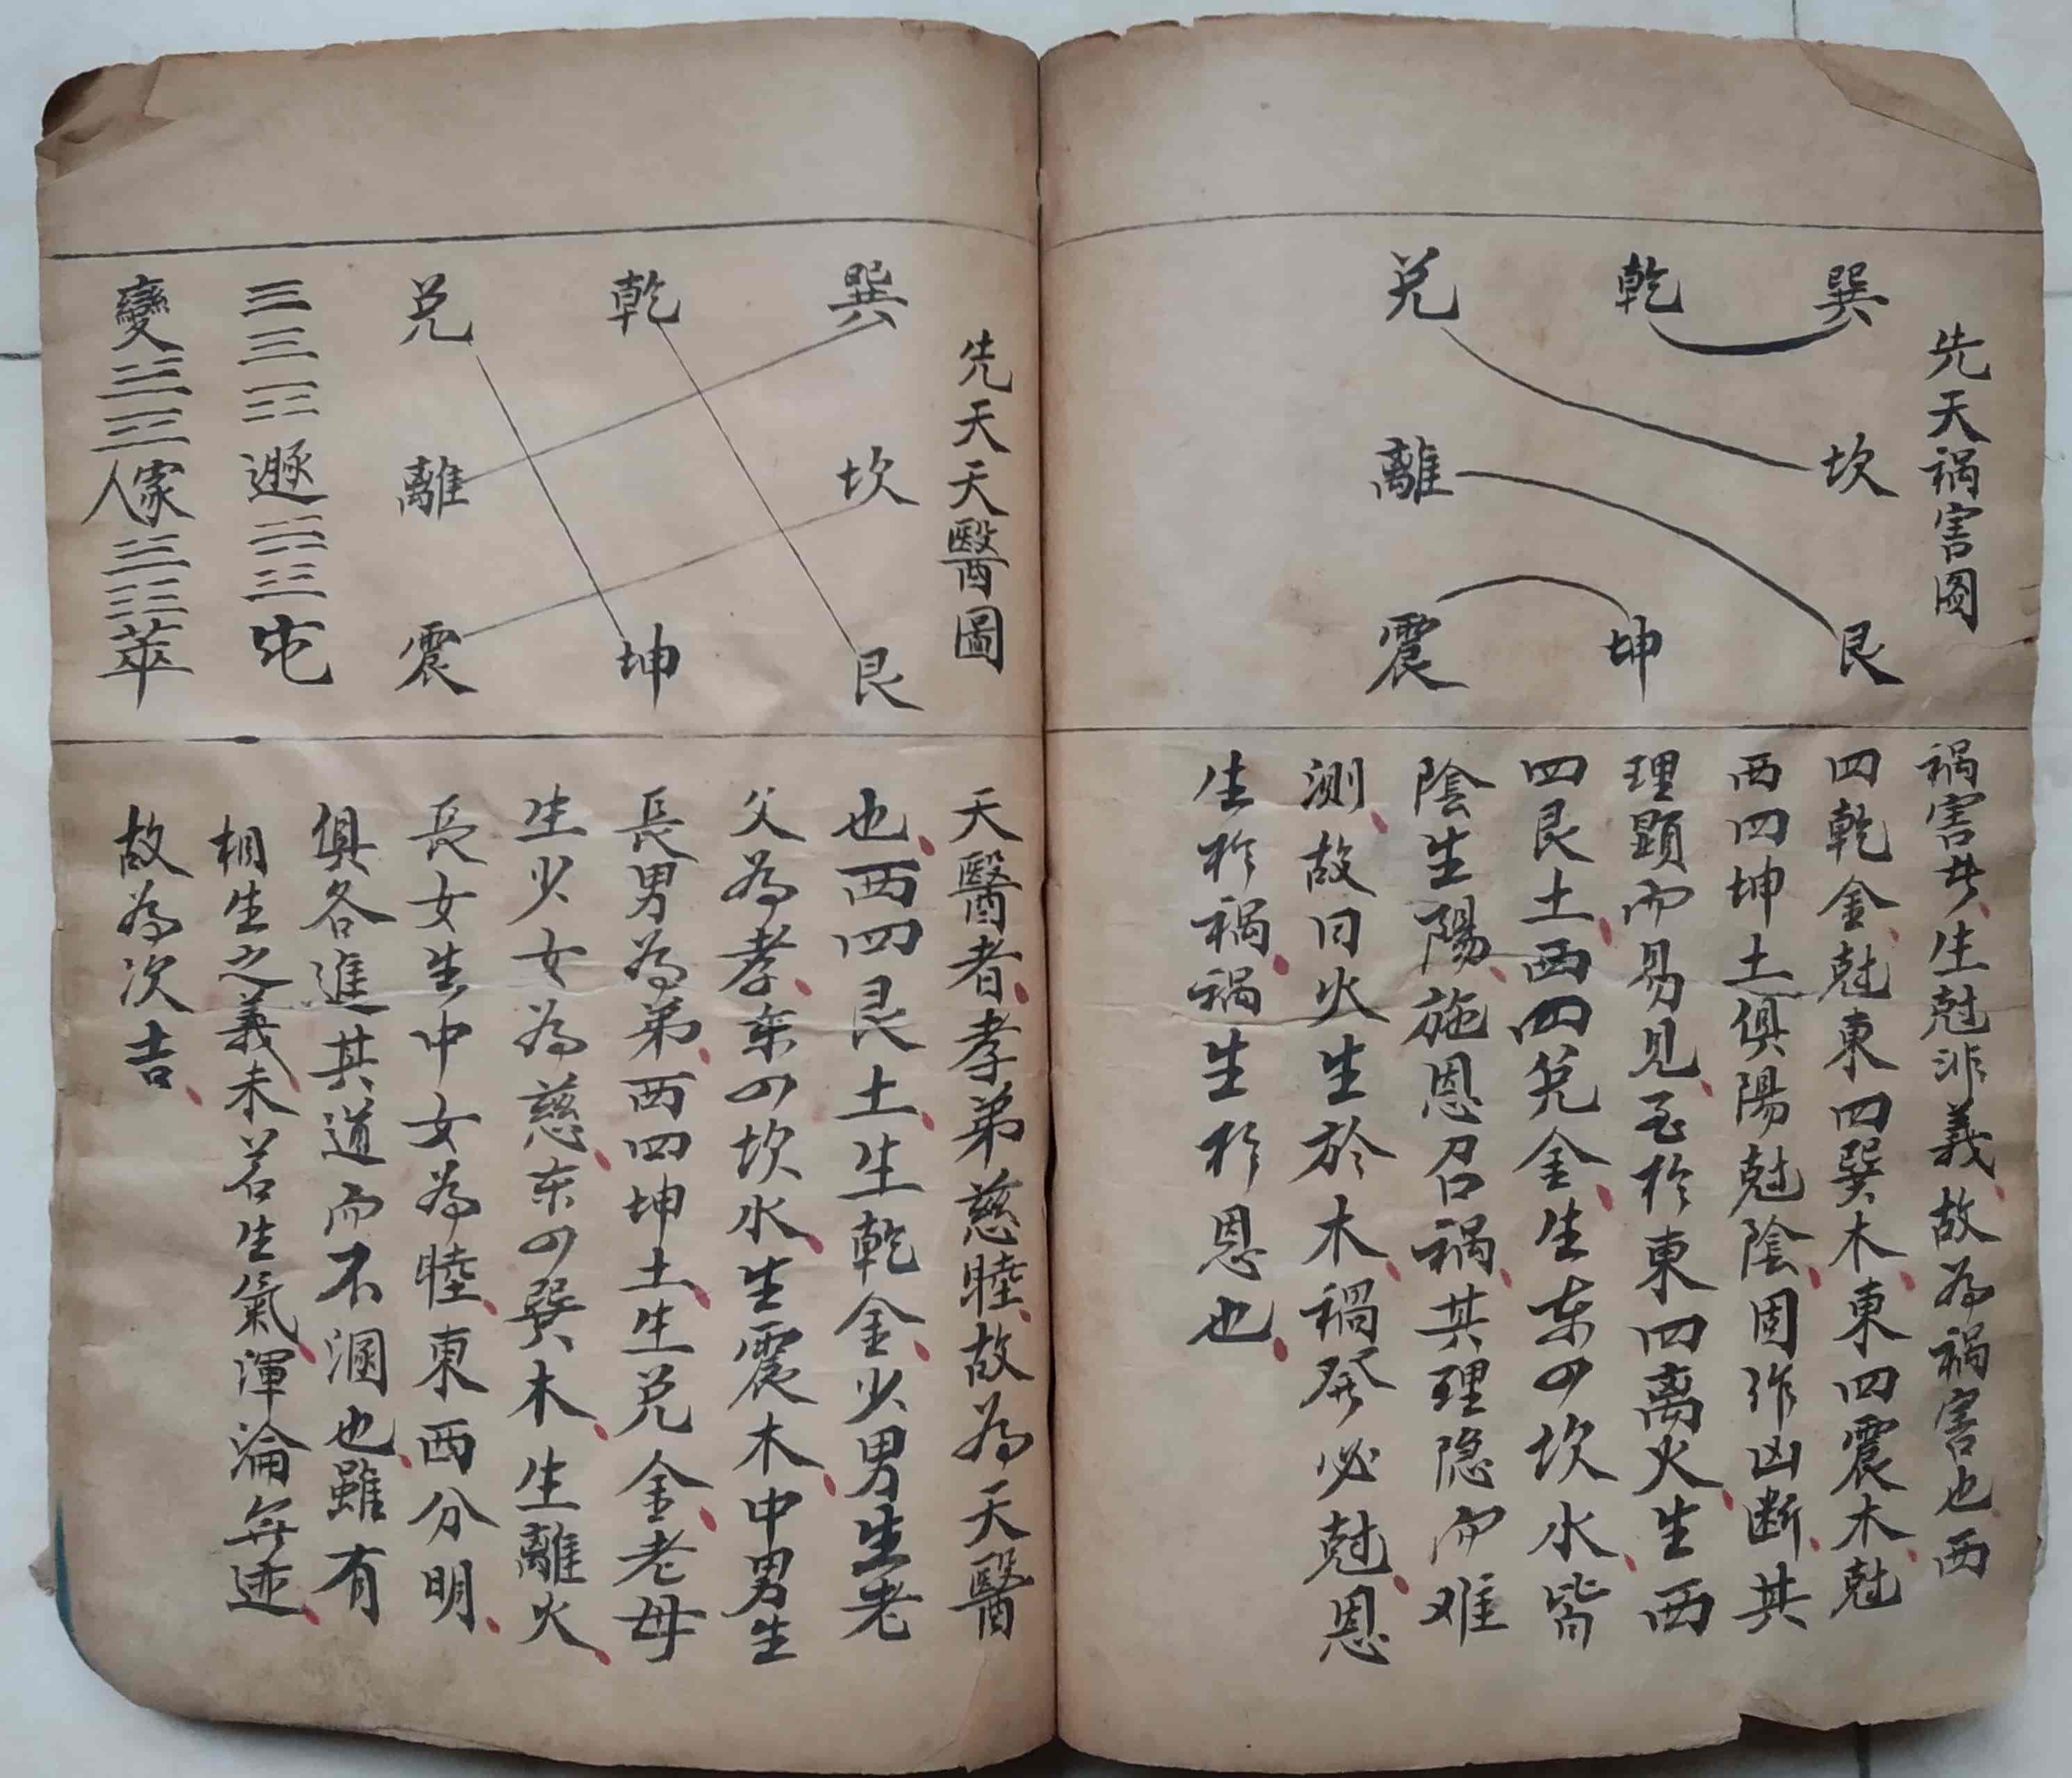 先天禍害图
巽 乾 兑
坎 離
艮 坤 震
禍害者生尅非義故為禍害也西
四乾金尅東四巽木東四震木尅
西四坤土俱陽尅陰固作凶断其
理顕而易見至於東四离火生西
四艮土西四兑金生东四坎水皆
陰生陽施恩召禍其理隐而难
测故曰火生於木禍發必尅恩
生於禍禍生於恩也
先天天醫圖
巽 乾 兑
坎 離
艮 坤 震
遯 屯
變 家人 萃
天醫者孝弟慈睦故為天醫
也西四艮土生乾金少男生老
父為孝东四坎水生震木中男生
長男為弟西四坤土生兑金老母
生少女為慈东四巽木生離火
長女生中女為睦東西分明
俱各進其道而不溷也雖有
相生之義未若生氣渾淪無迹
故為次吉